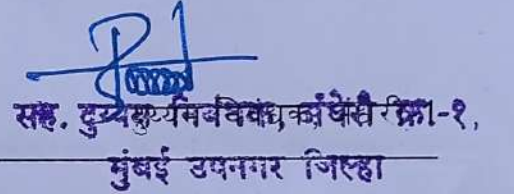 सह. दुय्यम निबंधक, अंधेरी क्र-१,
मुंबई उपनगर जिल्हा